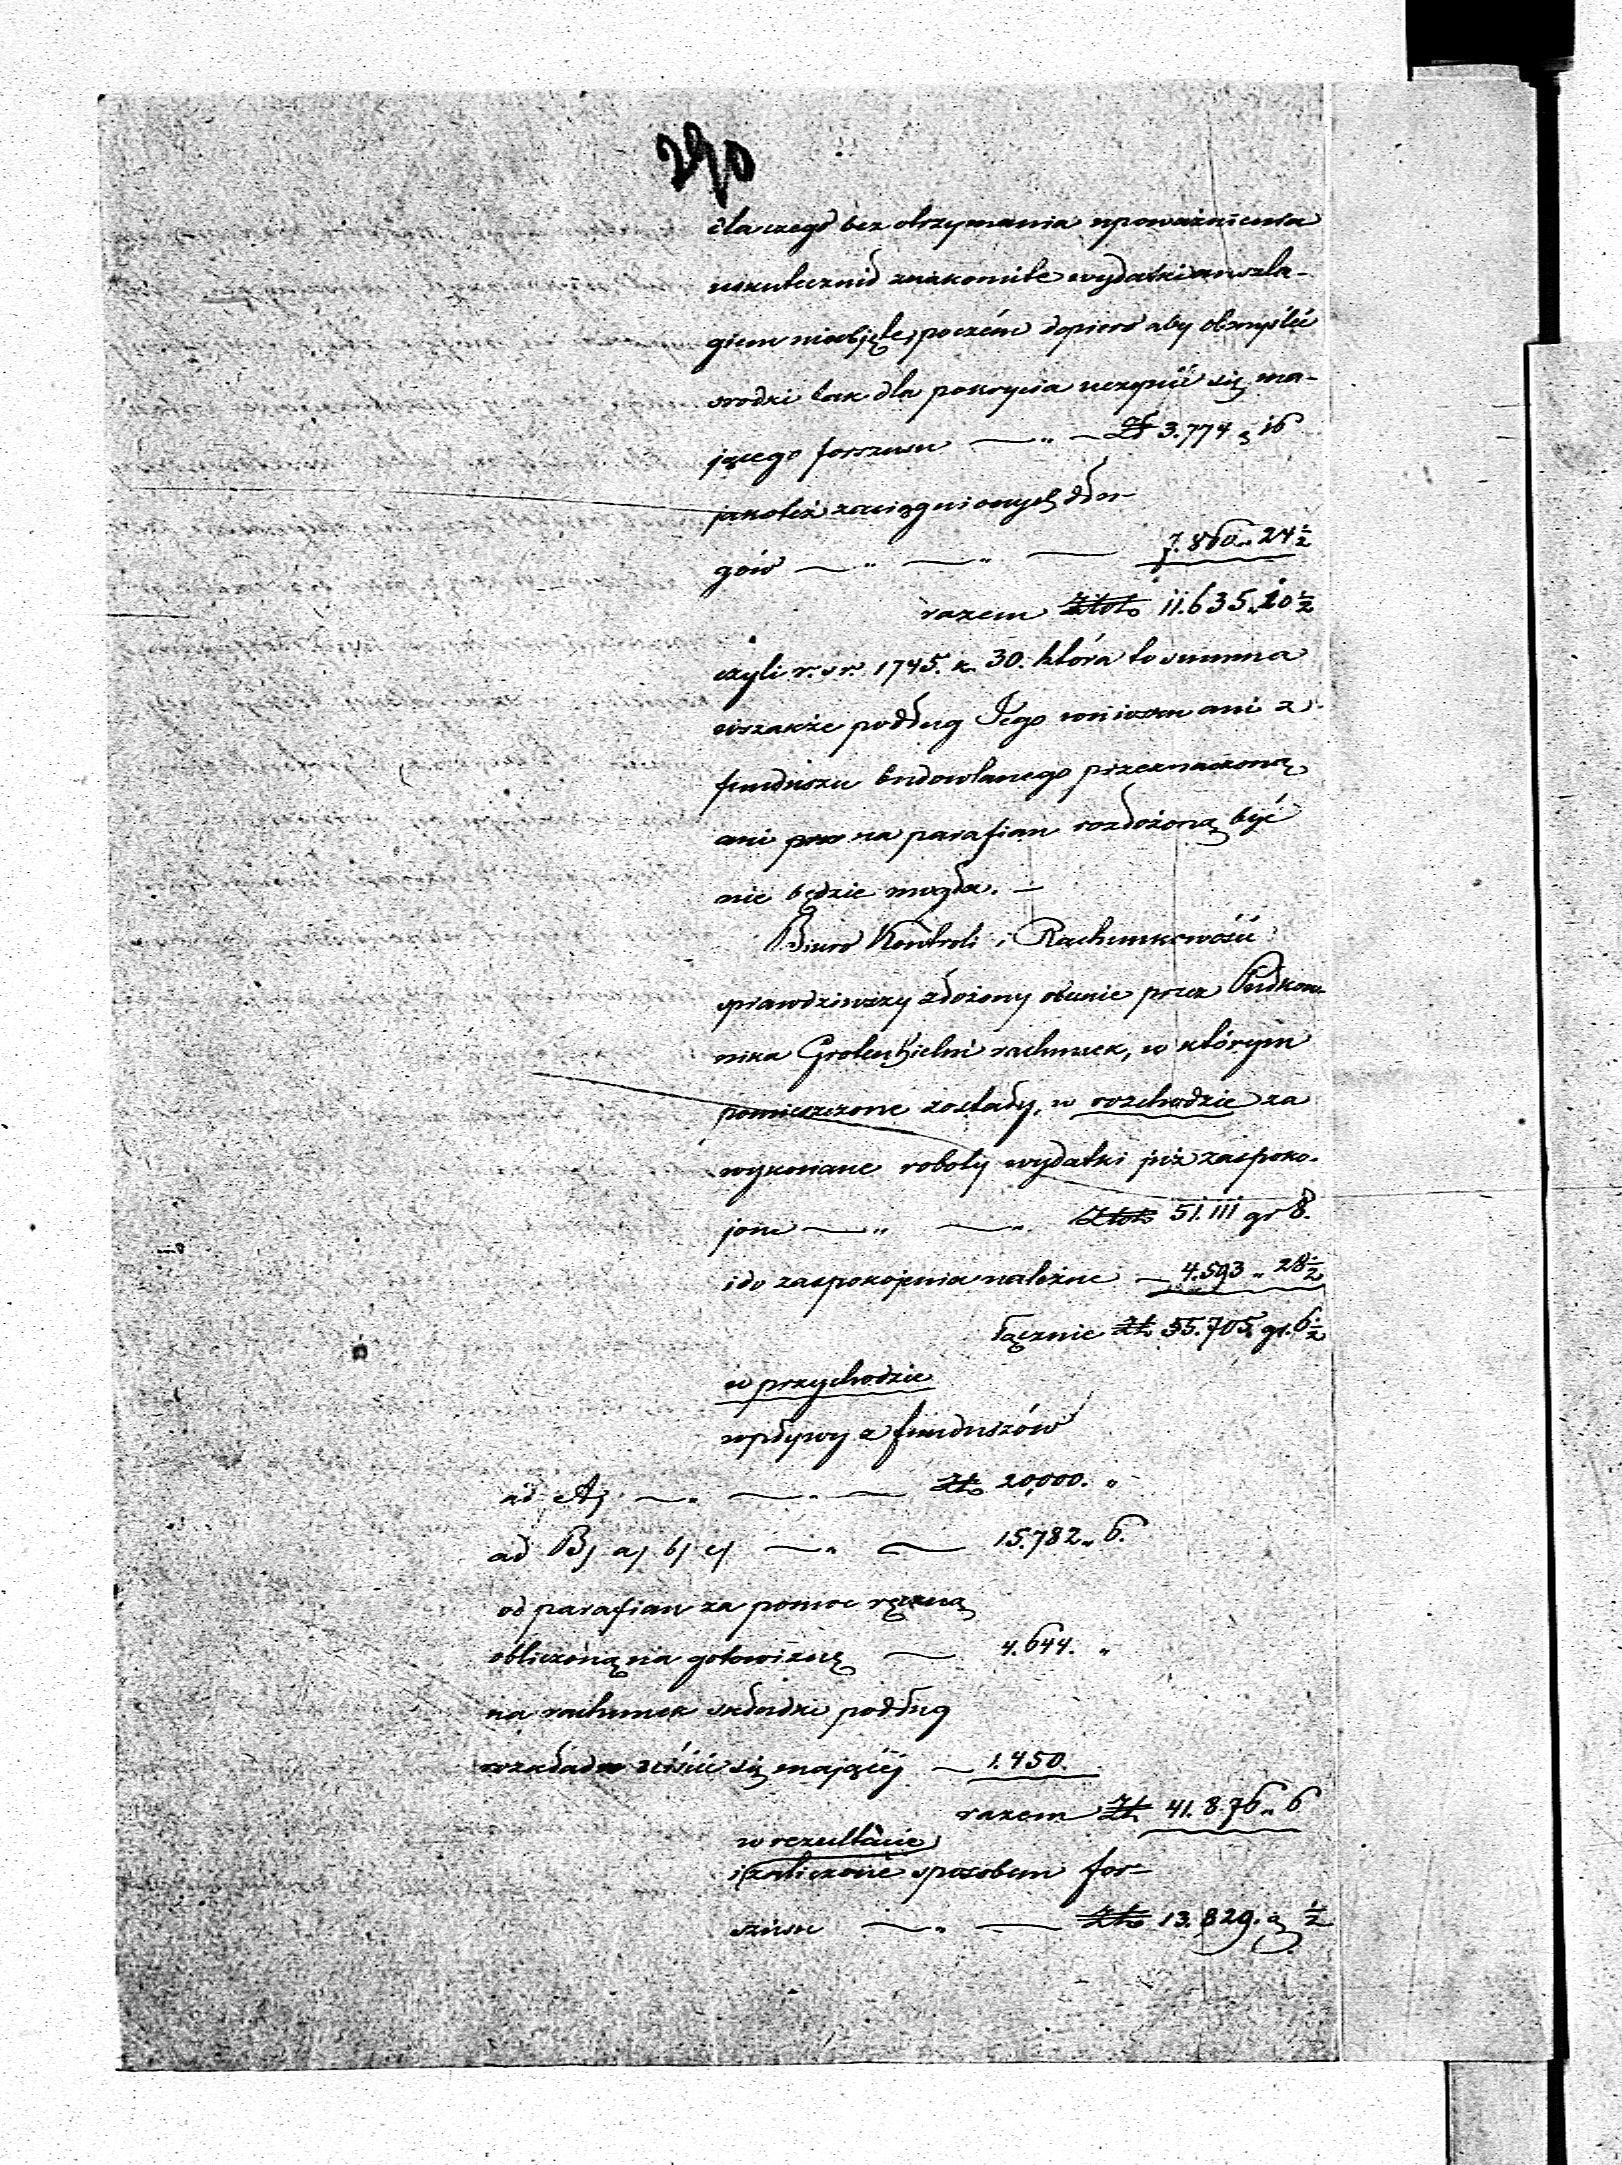 290
dla czego bez otrzymania upoważnienia
uskutecznił znakomite wydatki anszla-
giem nieobjęte, poczém dopiero aby obmyślić
srodki tak dla pokrycia uczynić się ma-
jącego forszusu — „ — Zł 3.774 g 16
jakoteż zaciągnionych dłu-
gów — „ — „ — 7.860 „ 24½
razem Złot. 11.635 „ 10½
czyli r. sr. 1745. k. 30. która to summa
wszakże podług Jego wniosku ani z
funduszu budowlanego przeznaczoną
ani na parafian rozłożoną być
nie będzie mogła. —
Biuro Kontroli i Rachunkowości
sprawdziwszy złożony obecnie przez Pułkow-
nika Grotenhielm rachunek, w którym
pomieszczone zostały, w rozchodzie za
wykonane roboty wydatki już zaspoko-
jone — „ — „ Złot. 51.111 gr 8.
i do zaspokojenia należne — 4.593 „ 28½
łącznie Zł. 55.705 gr. 6½
w przychodzie
wpływy z funduszów
ad A/ — „ — „ — Zł. 20,000. „
ad B/ a/ b/ c/ — „ — 15.782 „ 6.
od parafian za pomoc ręczną
obliczoną na gotowiznę — 4.644. „
na rachunek składki podług
rozkładu ziścić się mającéj — 1.450.
razem Zł. 41.876 „ 6
w rezultacie
i zaliczone sposobem for-
szusu — „ — Zł. 13.829. g ½